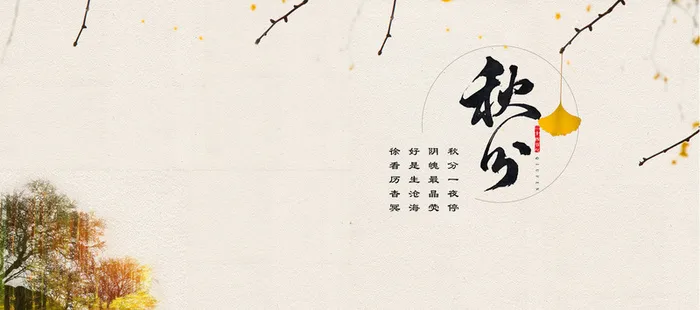 秋分
WINTER
秋分一夜停
阴魄最晶荧
好是生沧海
徐看历杳冥